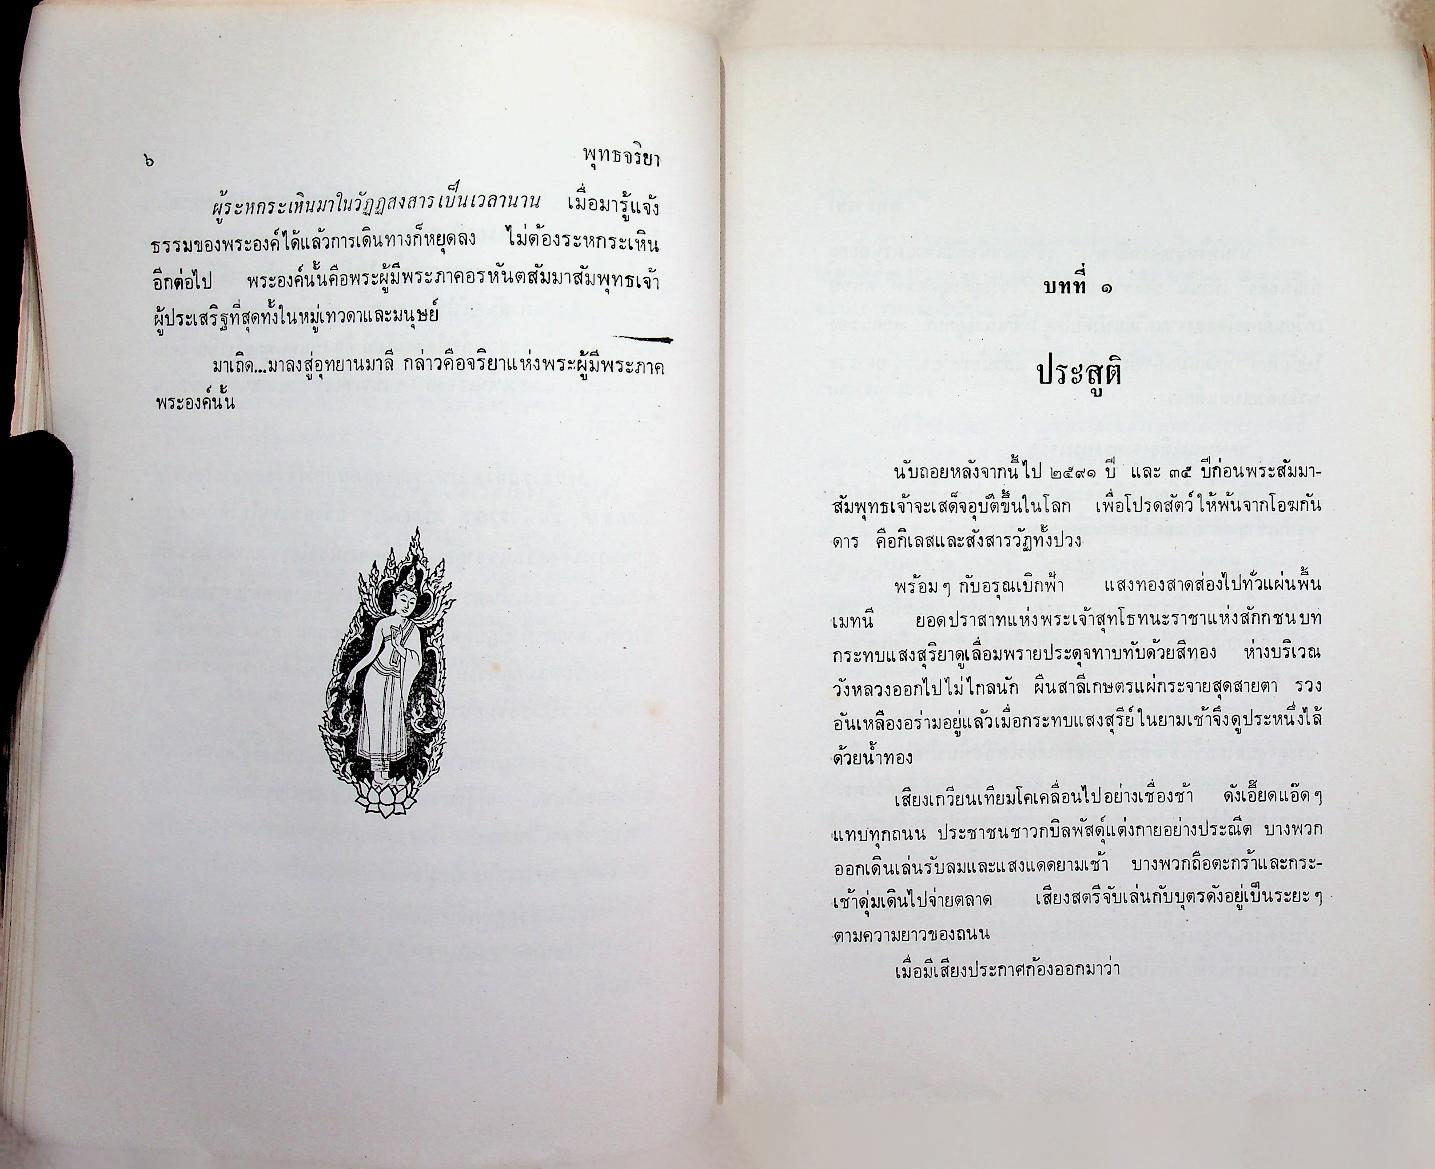 ๖ พุทธจริยา
ผู้ระหกระเหินมาในวัฏฏสงสารเป็นเวลานาน เมื่อมารู้แจ้ง
ธรรมของพระองค์ได้แล้วการเดินทางก็หยุดลง ไม่ต้องระหกระเหิน
อีกต่อไป พระองค์นั้นคือพระผู้มีพระภาคอรหันตสัมมาสัมพุทธเจ้า
ผู้ประเสริฐที่สุดทั้งในหมู่เทวดาและมนุษย์
มาเถิด...มาลงสู่อุทยานมาลี กล่าวคือจริยาแห่งพระผู้มีพระภาค
พระองค์นั้น
บทที่ ๑
ประสูติ
นับถอยหลังจากนี้ไป ๒๕๙๑ ปี และ ๓๕ ปีก่อนพระสัมมา-
สัมพุทธเจ้าจะเสด็จอุบัติขึ้นในโลก เพื่อโปรดสัตว์ให้พ้นจากโอฆกัน
ดาร คือกิเลสและสังสารวัฏทั้งปวง
พร้อมๆ กับอรุณเบิกฟ้า แสงทองสาดส่องไปทั่วแผ่นพื้น
เมทนี ยอดปราสาทแห่งพระเจ้าสุทโธทนะราชาแห่งสักกชนบท
กระทบแสงสุริยาดูเลื่อมพรายประดุจทาบทับด้วยสีทอง ห่างบริเวณ
วังหลวงออกไปไม่ไกลนัก ผืนสาลีเกษตรแผ่กระจายสุดสายตา รวง
อันเหลืองอร่ามอยู่แล้วเมื่อกระทบแสงสุรีย์ในยามเช้าจึงดูประหนึ่งไล้
ด้วยน้ำทอง
เสียงเกวียนเทียมโคเคลื่อนไปอย่างเชื่องช้า ดังเอี๊ยดแอ๊ดๆ
แทบทุกถนน ประชาชนชาวกบิลพัสดุ์แต่งกายอย่างประณีต บางพวก
ออกเดินเล่นรับลมและแสงแดดยามเช้า บางพวกถือตะกร้าและกระ-
เช้าดุ่มเดินไปจ่ายตลาด เสียงสตรีจับเล่นกับบุตรดังอยู่เป็นระยะๆ
ตามความยาวของถนน
เมื่อมีเสียงประกาศก้องออกมาว่า